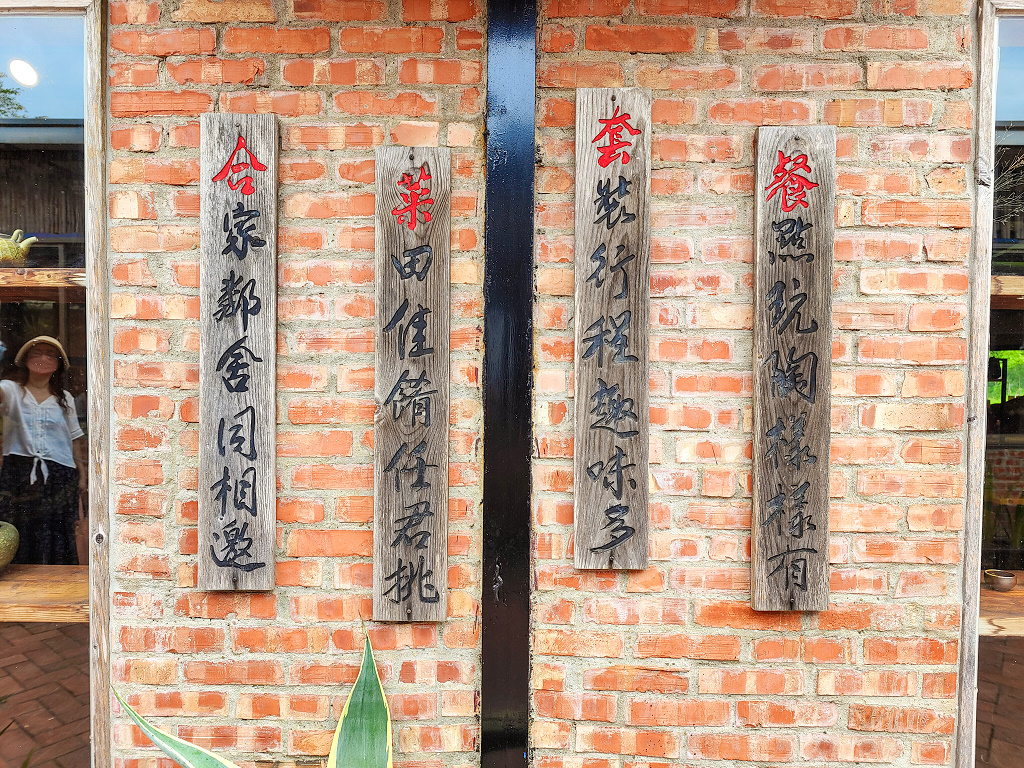 餐點玩陶樣樣有
套裝行程趣味多
菜田佳餚任君挑
合家鄰舍同相邀